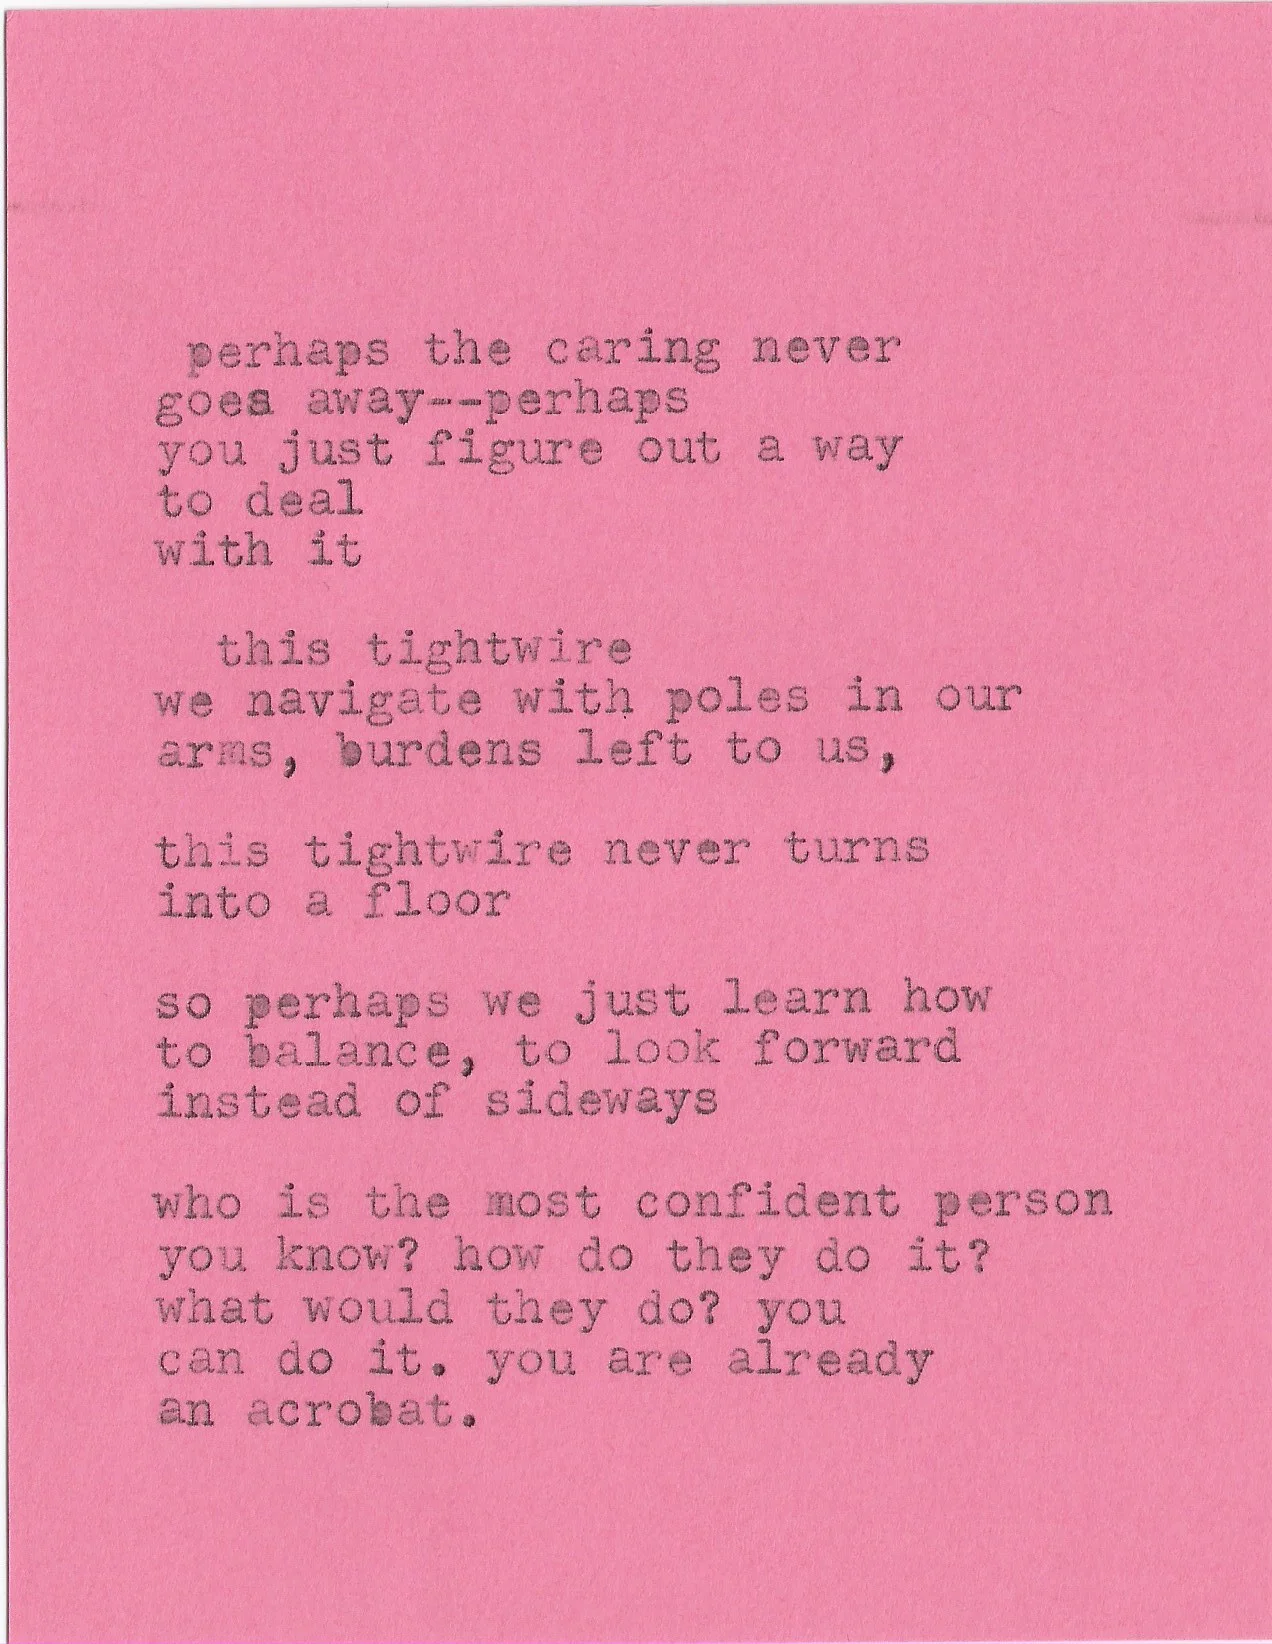 perhaps the caring never
goes away--perhaps
you just figure out a way
to deal
with it
this tightwire
we navigate with poles in our
arms, burdens left to us,
this tightwire never turns
into a floor
so perhaps we just learn how
to balance, to look forward
instead of sideways
who is the most confident person
you know? how do they do it?
what would they do? you
can do it. you are already
an acrobat.